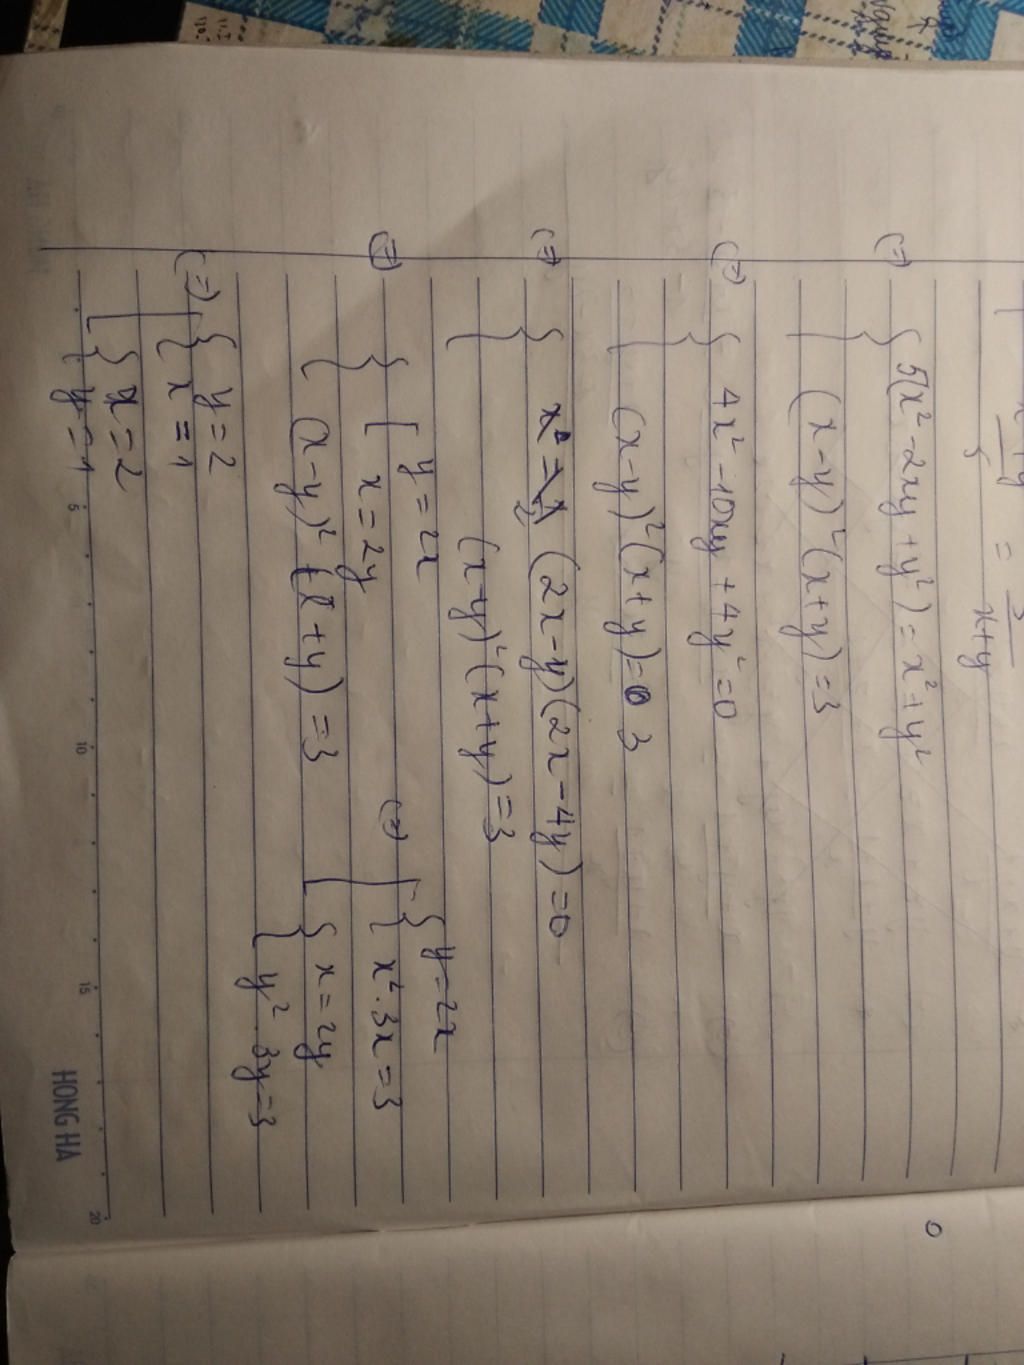 x²+y²/5 = 3/x+y
(=) { 5(x² - 2xy + y²) = x² + y²
(x-y)²(x+y) = 3
(=) { 4x² - 10xy + 4y² = 0
(x-y)²(x+y) = 3
(=) { (2x-y)(2x-4y) = 0
(x-y)²(x+y) = 3
(=) { [ y = 2x
x = 2y
(x-y)² (x+y) = 3
(=) [ { y = 2x
x² . 3x = 3
{ x = 2y
y² . 3y = 3
(=) [ { y = 2
x = 1
{ x = 2
y = 1
5 10 15 20
HONG HA